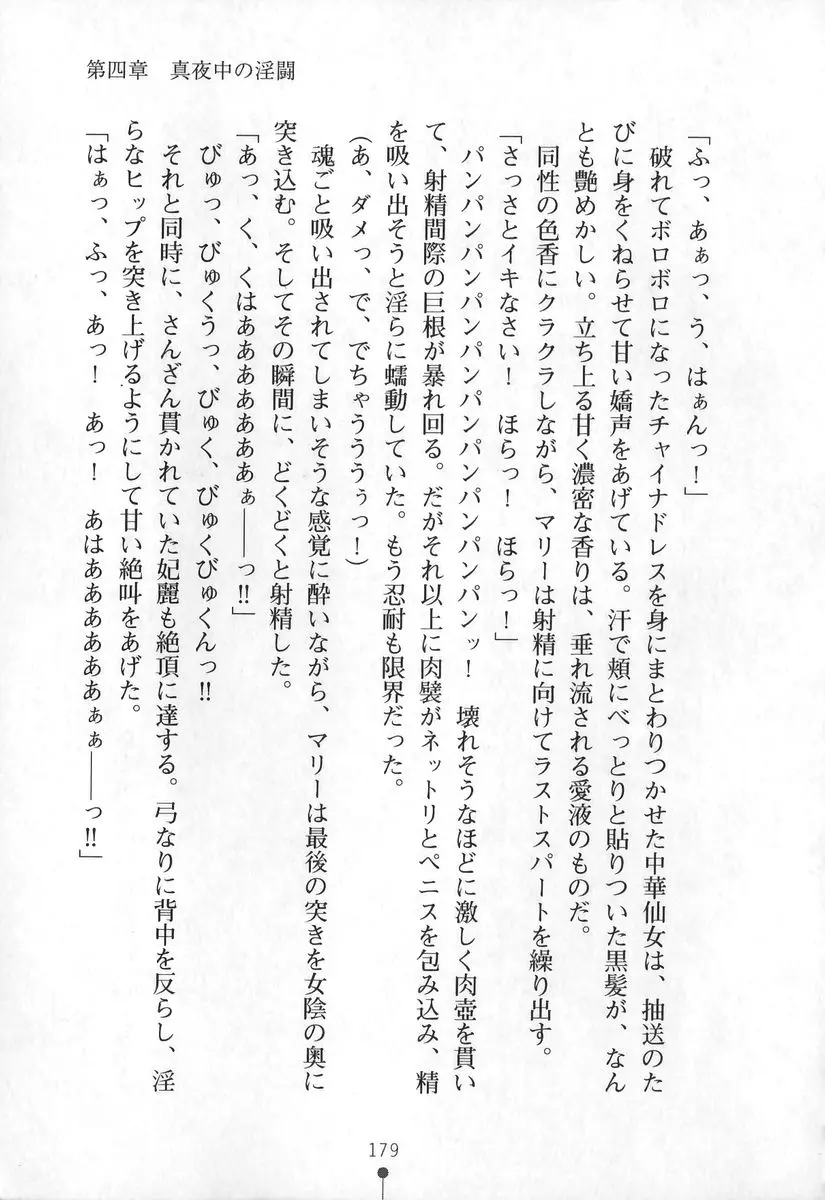 第四章　真夜中の淫闘
「ふっ、あぁっ、う、はぁんっ！」
　破れてボロボロになったチャイナドレスを身にまとわりつかせた中華仙女は、抽送のた
びに身をくねらせて甘い嬌声をあげている。汗で頬にべっとりと貼りついた黒髪が、なん
とも艶めかしい。立ち上る甘く濃密な香りは、垂れ流される愛液のものだ。
　同性の色香にクラクラしながら、マリーは射精に向けてラストスパートを繰り出す。
「さっさとイキなさい！　ほらっ！　ほらっ！」
　パンパンパンパンパンパンパンパンパンッ！　壊れそうなほどに激しく肉壺を貫い
て、射精間際の巨根が暴れ回る。だがそれ以上に肉襞がネットリとペニスを包み込み、精
を吸い出そうと淫らに蠕動していた。もう忍耐も限界だった。
（あ、ダメっ、で、でちゃうううぅっ！）
　魂ごと吸い出されてしまいそうな感覚に酔いながら、マリーは最後の突きを女陰の奥に
突き込む。そしてその瞬間に、どくどくと射精した。
「あっ、く、くはああああああああぁ――っ!!」
　びゅっ、びゅくうっ、びゅく、びゅくびゅくんっ!!
　それと同時に、さんざん貫かれていた妃麗も絶頂に達する。弓なりに背中を反らし、淫
らなヒップを突き上げるようにして甘い絶叫をあげた。
「はぁっ、ふっ、あっ！　あっ！　あはああああああぁぁ――っ!!」
179